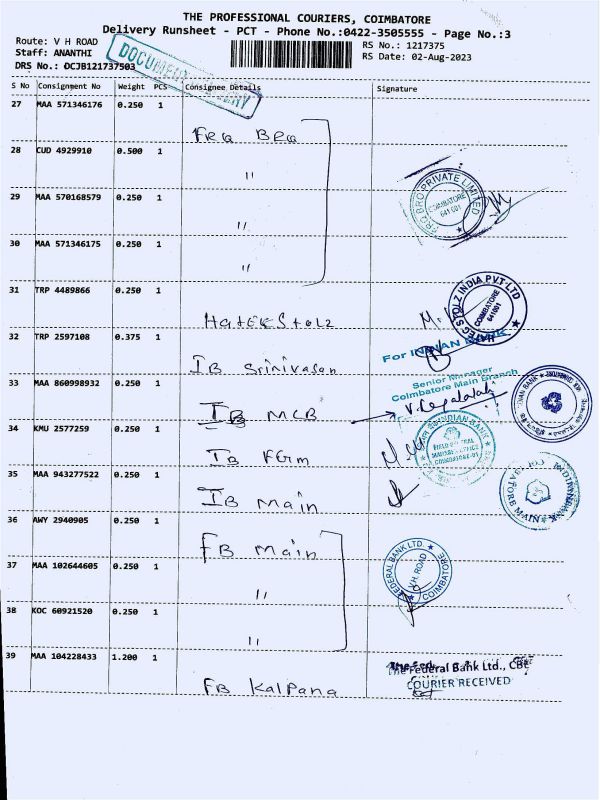 THE PROFESSIONAL COURIERS, COIMBATORE
Delivery Runsheet - PCT - Phone No.:0422-3505555 - Page No.:3
Route: V H ROAD
RS No.: 1217375
Staff: ANANTHI
RS Date: 02-Aug-2023
DRS No.: DCJB121737503
DOCUMENT
S No Consignment No Weight PCS Consignee Details Signature
27 MAA 571346176 0.250 1
FRG BRG
28 CUD 4929910 0.500 1
"
29 MAA 570168579 0.250 1
"
30 MAA 571346175 0.250 1
"
PRIVATE LIMITED
COIMBATORE
641 001
31 TRP 4489866 0.250 1
HateKStolz
HATEC STOLZ INDIA PVT LTD
COIMBATORE
641001
32 TRP 2597108 0.375 1
IB Srinivasan
For INDIAN BANK
Senior Manager
Coimbatore Main Branch
33 MAA 860998932 0.250 1
IB MCB
34 KMU 2577259 0.250 1
IB FGm
INDIAN BANK
35 MAA 943277522 0.250 1
IB Main
36 AWY 2940905 0.250 1
FB Main
37 MAA 102644605 0.250 1
"
FEDERAL BANK LTD.
V.H. ROAD
COIMBATORE
38 KOC 60921520 0.250 1
"
39 MAA 104228433 1.200 1
FB Kalpana
The Federal Bank Ltd., CBE
COURIER RECEIVED